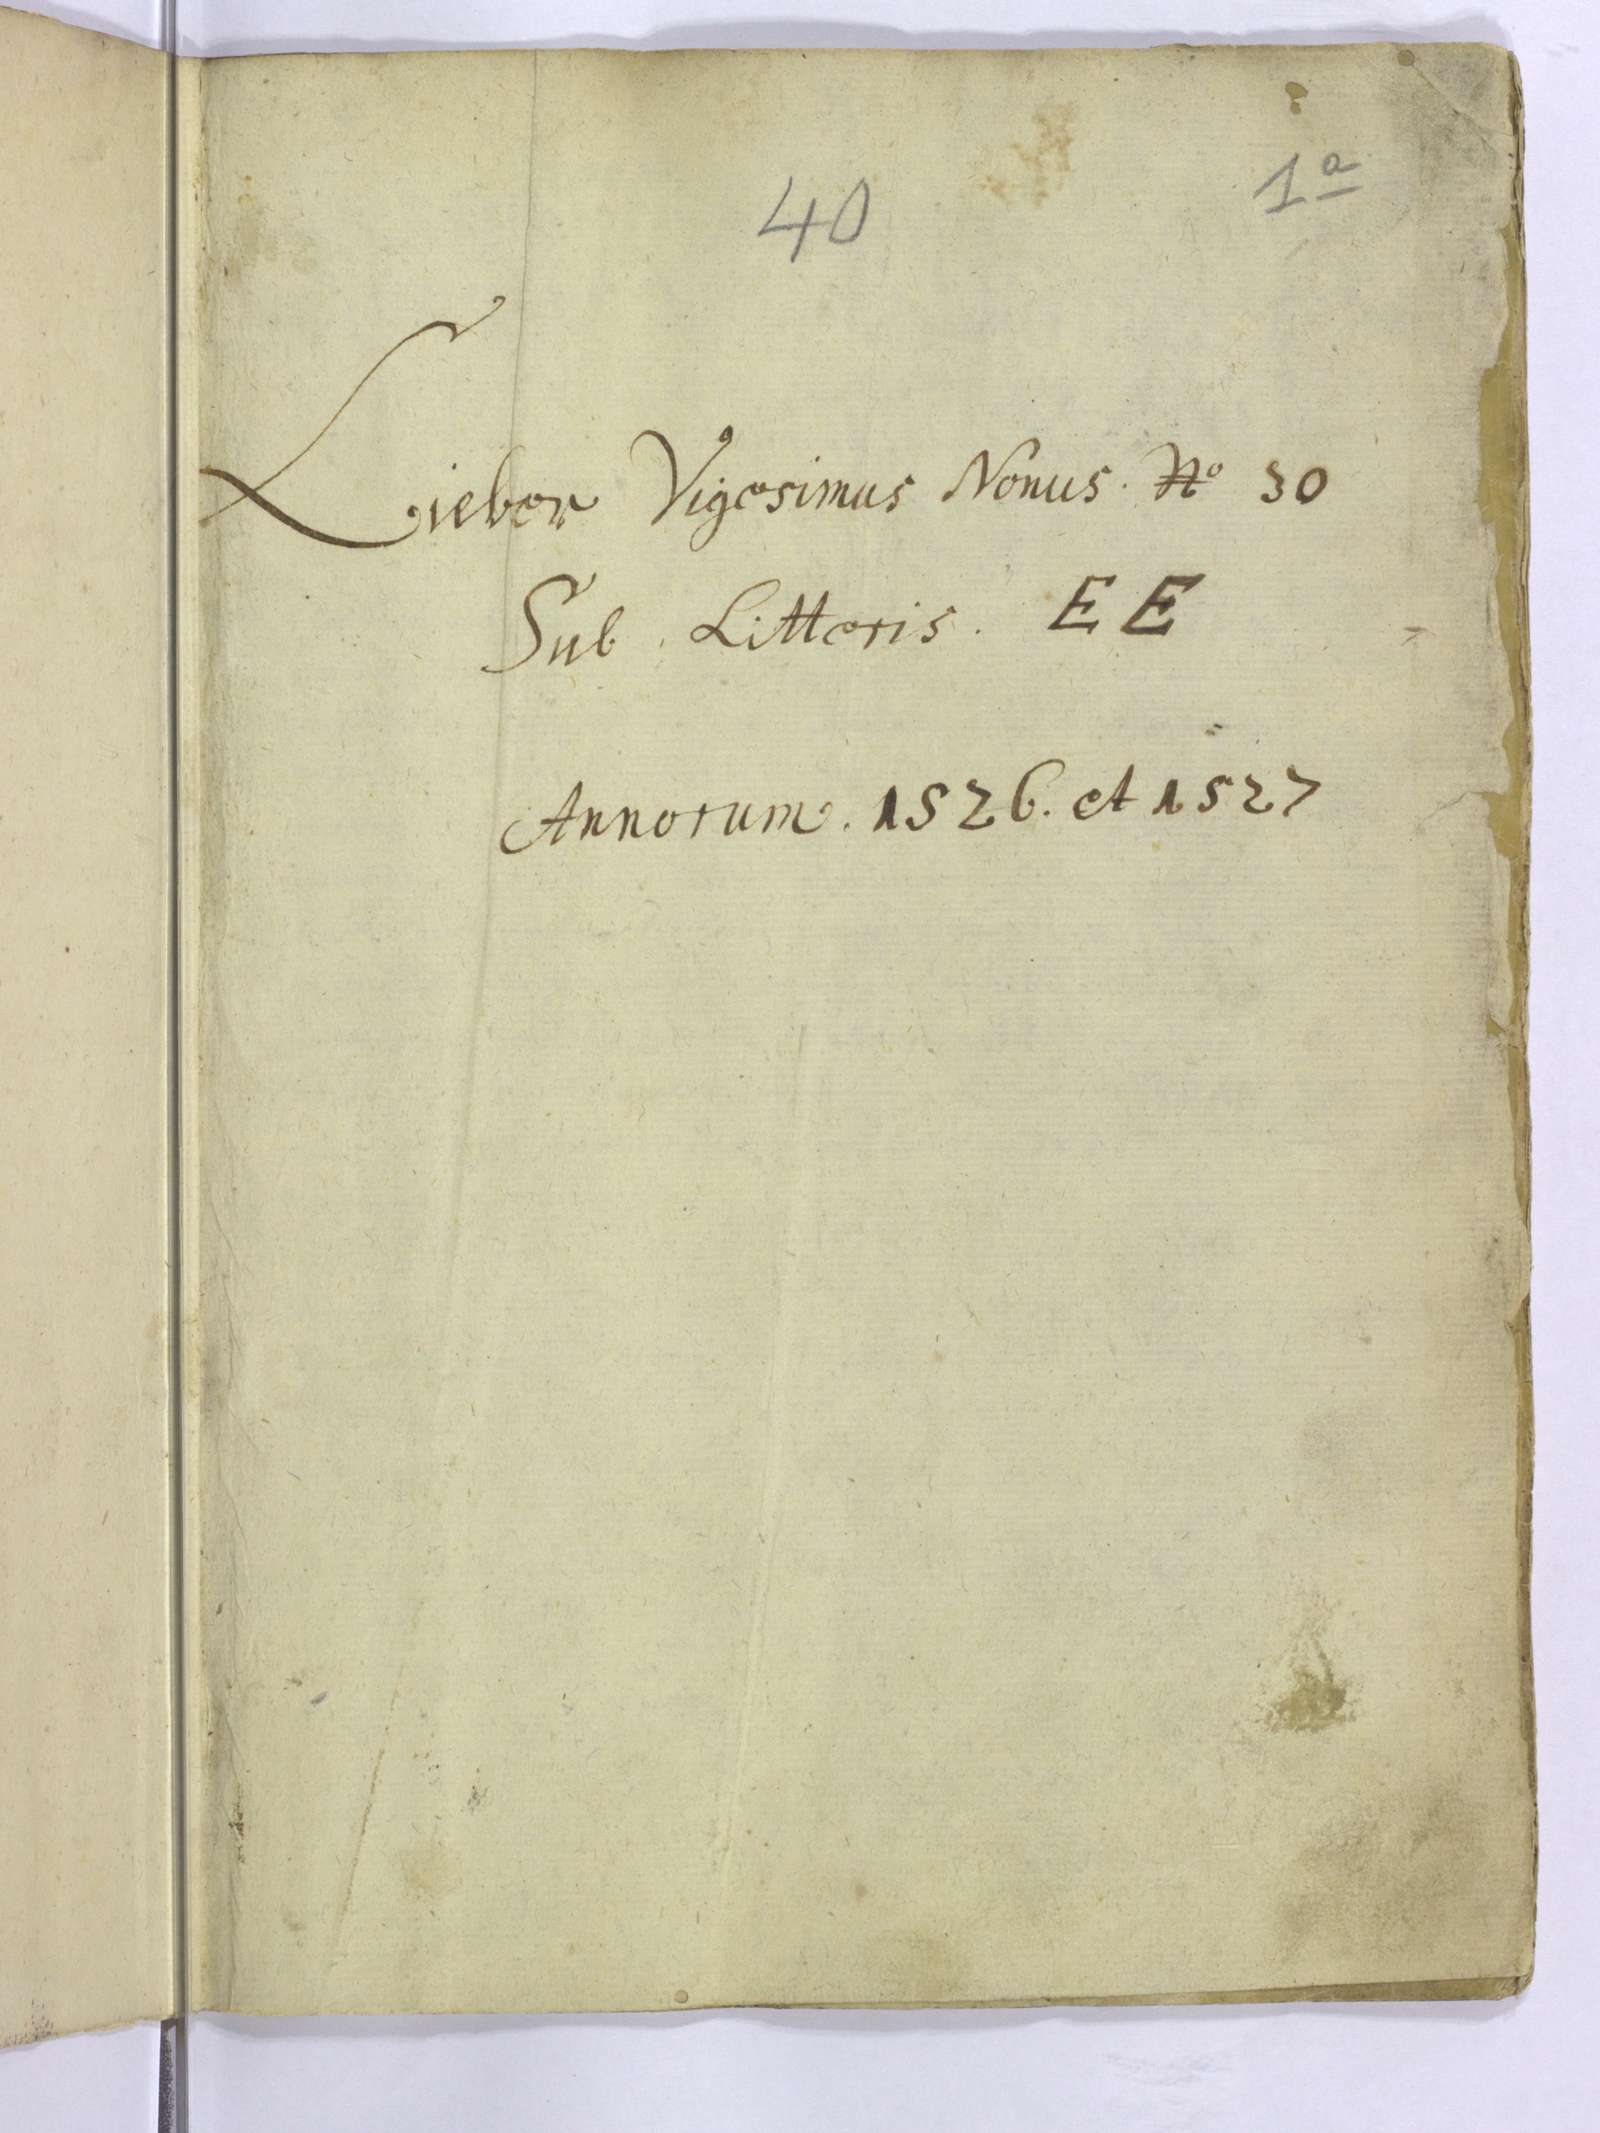 40
1a
Lieber Vigesimus Nonus. No 30
Sub. Litteris. E E
Annorum. 1526. et 1527